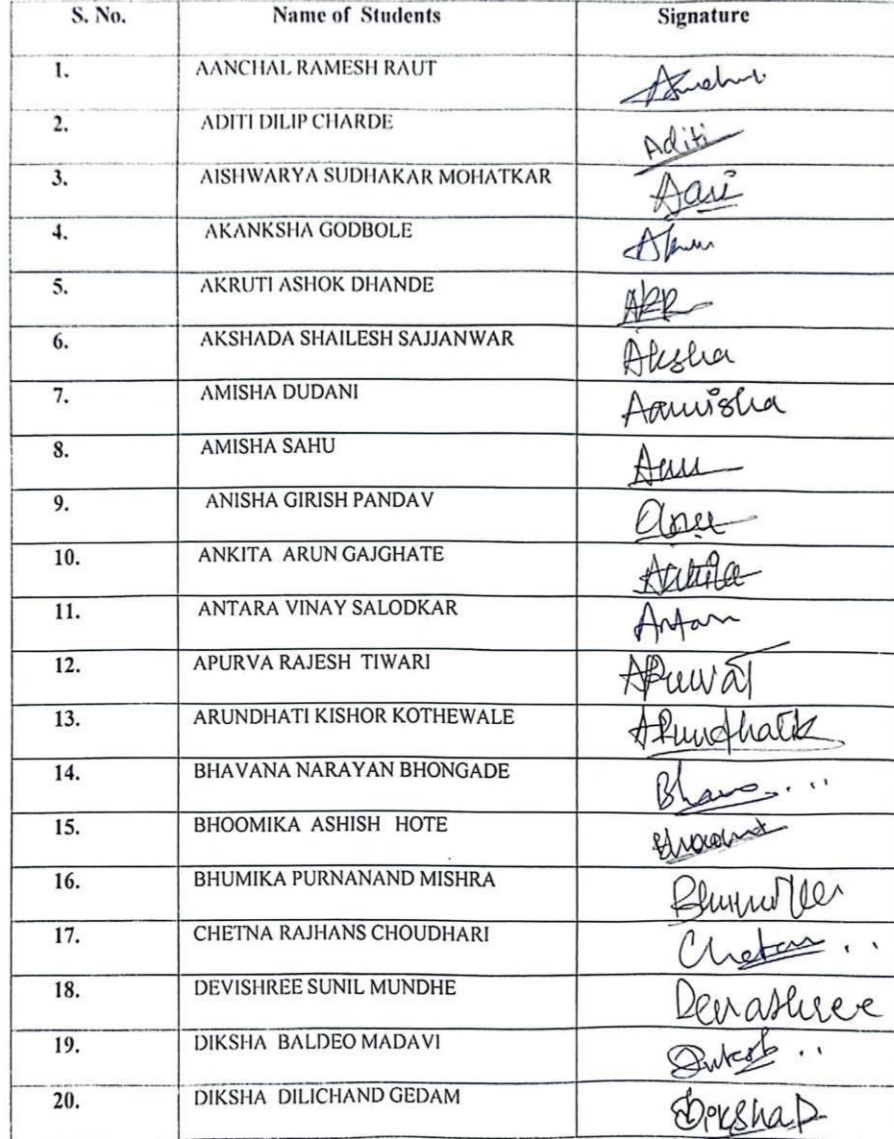 S. No. Name of Students Signature
1. AANCHAL RAMESH RAUT
2. ADITI DILIP CHARDE Aditi
3. AISHWARYA SUDHAKAR MOHATKAR
4. AKANKSHA GODBOLE
5. AKRUTI ASHOK DHANDE
6. AKSHADA SHAILESH SAJJANWAR Aksha
7. AMISHA DUDANI Aamisha
8. AMISHA SAHU
9. ANISHA GIRISH PANDAV
10. ANKITA ARUN GAJGHATE Ankita
11. ANTARA VINAY SALODKAR Antara
12. APURVA RAJESH TIWARI
13. ARUNDHATI KISHOR KOTHEWALE ArundhatiK
14. BHAVANA NARAYAN BHONGADE
15. BHOOMIKA ASHISH HOTE
16. BHUMIKA PURNANAND MISHRA
17. CHETNA RAJHANS CHOUDHARI
18. DEVISHREE SUNIL MUNDHE Devashree
19. DIKSHA BALDEO MADAVI
20. DIKSHA DILICHAND GEDAM DikshaD